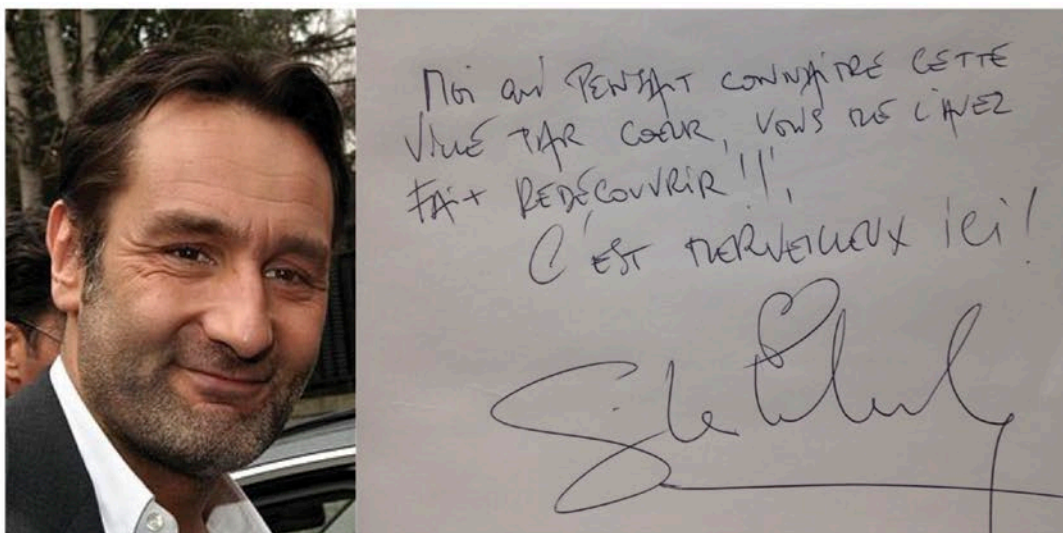 Moi qui PENSAIT CONNAÎTRE CETTE
VILLE PAR COEUR, VOUS ME L'AVEZ
FAit REDÉCOUVRIR !!!
C'EST MERVEILLEUX ici !